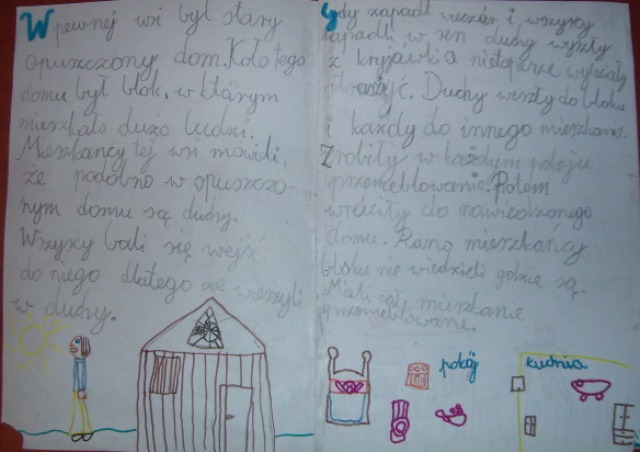 W pewnej wsi był stary
opuszczony dom. Koło tego
domu był blok, w którym
mieszkało dużo ludzi.
Mieszkańcy tej wsi mówili,
że podobno w opuszczo-
nym domu są duchy.
Wszyscy bali się wejść
do niego dlatego że wierzyli
w duchy.
Gdy zapadł wieczór i wszyscy
zapadli w sen duchy wyszły
z kryjówki a nietoperze wyleciały
straszyć. Duchy weszły do bloku
i każdy do innego mieszkania.
Zrobiły w każdym pokoju
przemeblowanie. Potem
wróciły do nawiedzonego
domu. Rano mieszkańcy
bloku nie wiedzieli gdzie są.
Mieli całe mieszkanie
przemeblowane.
pokój
kuchnia